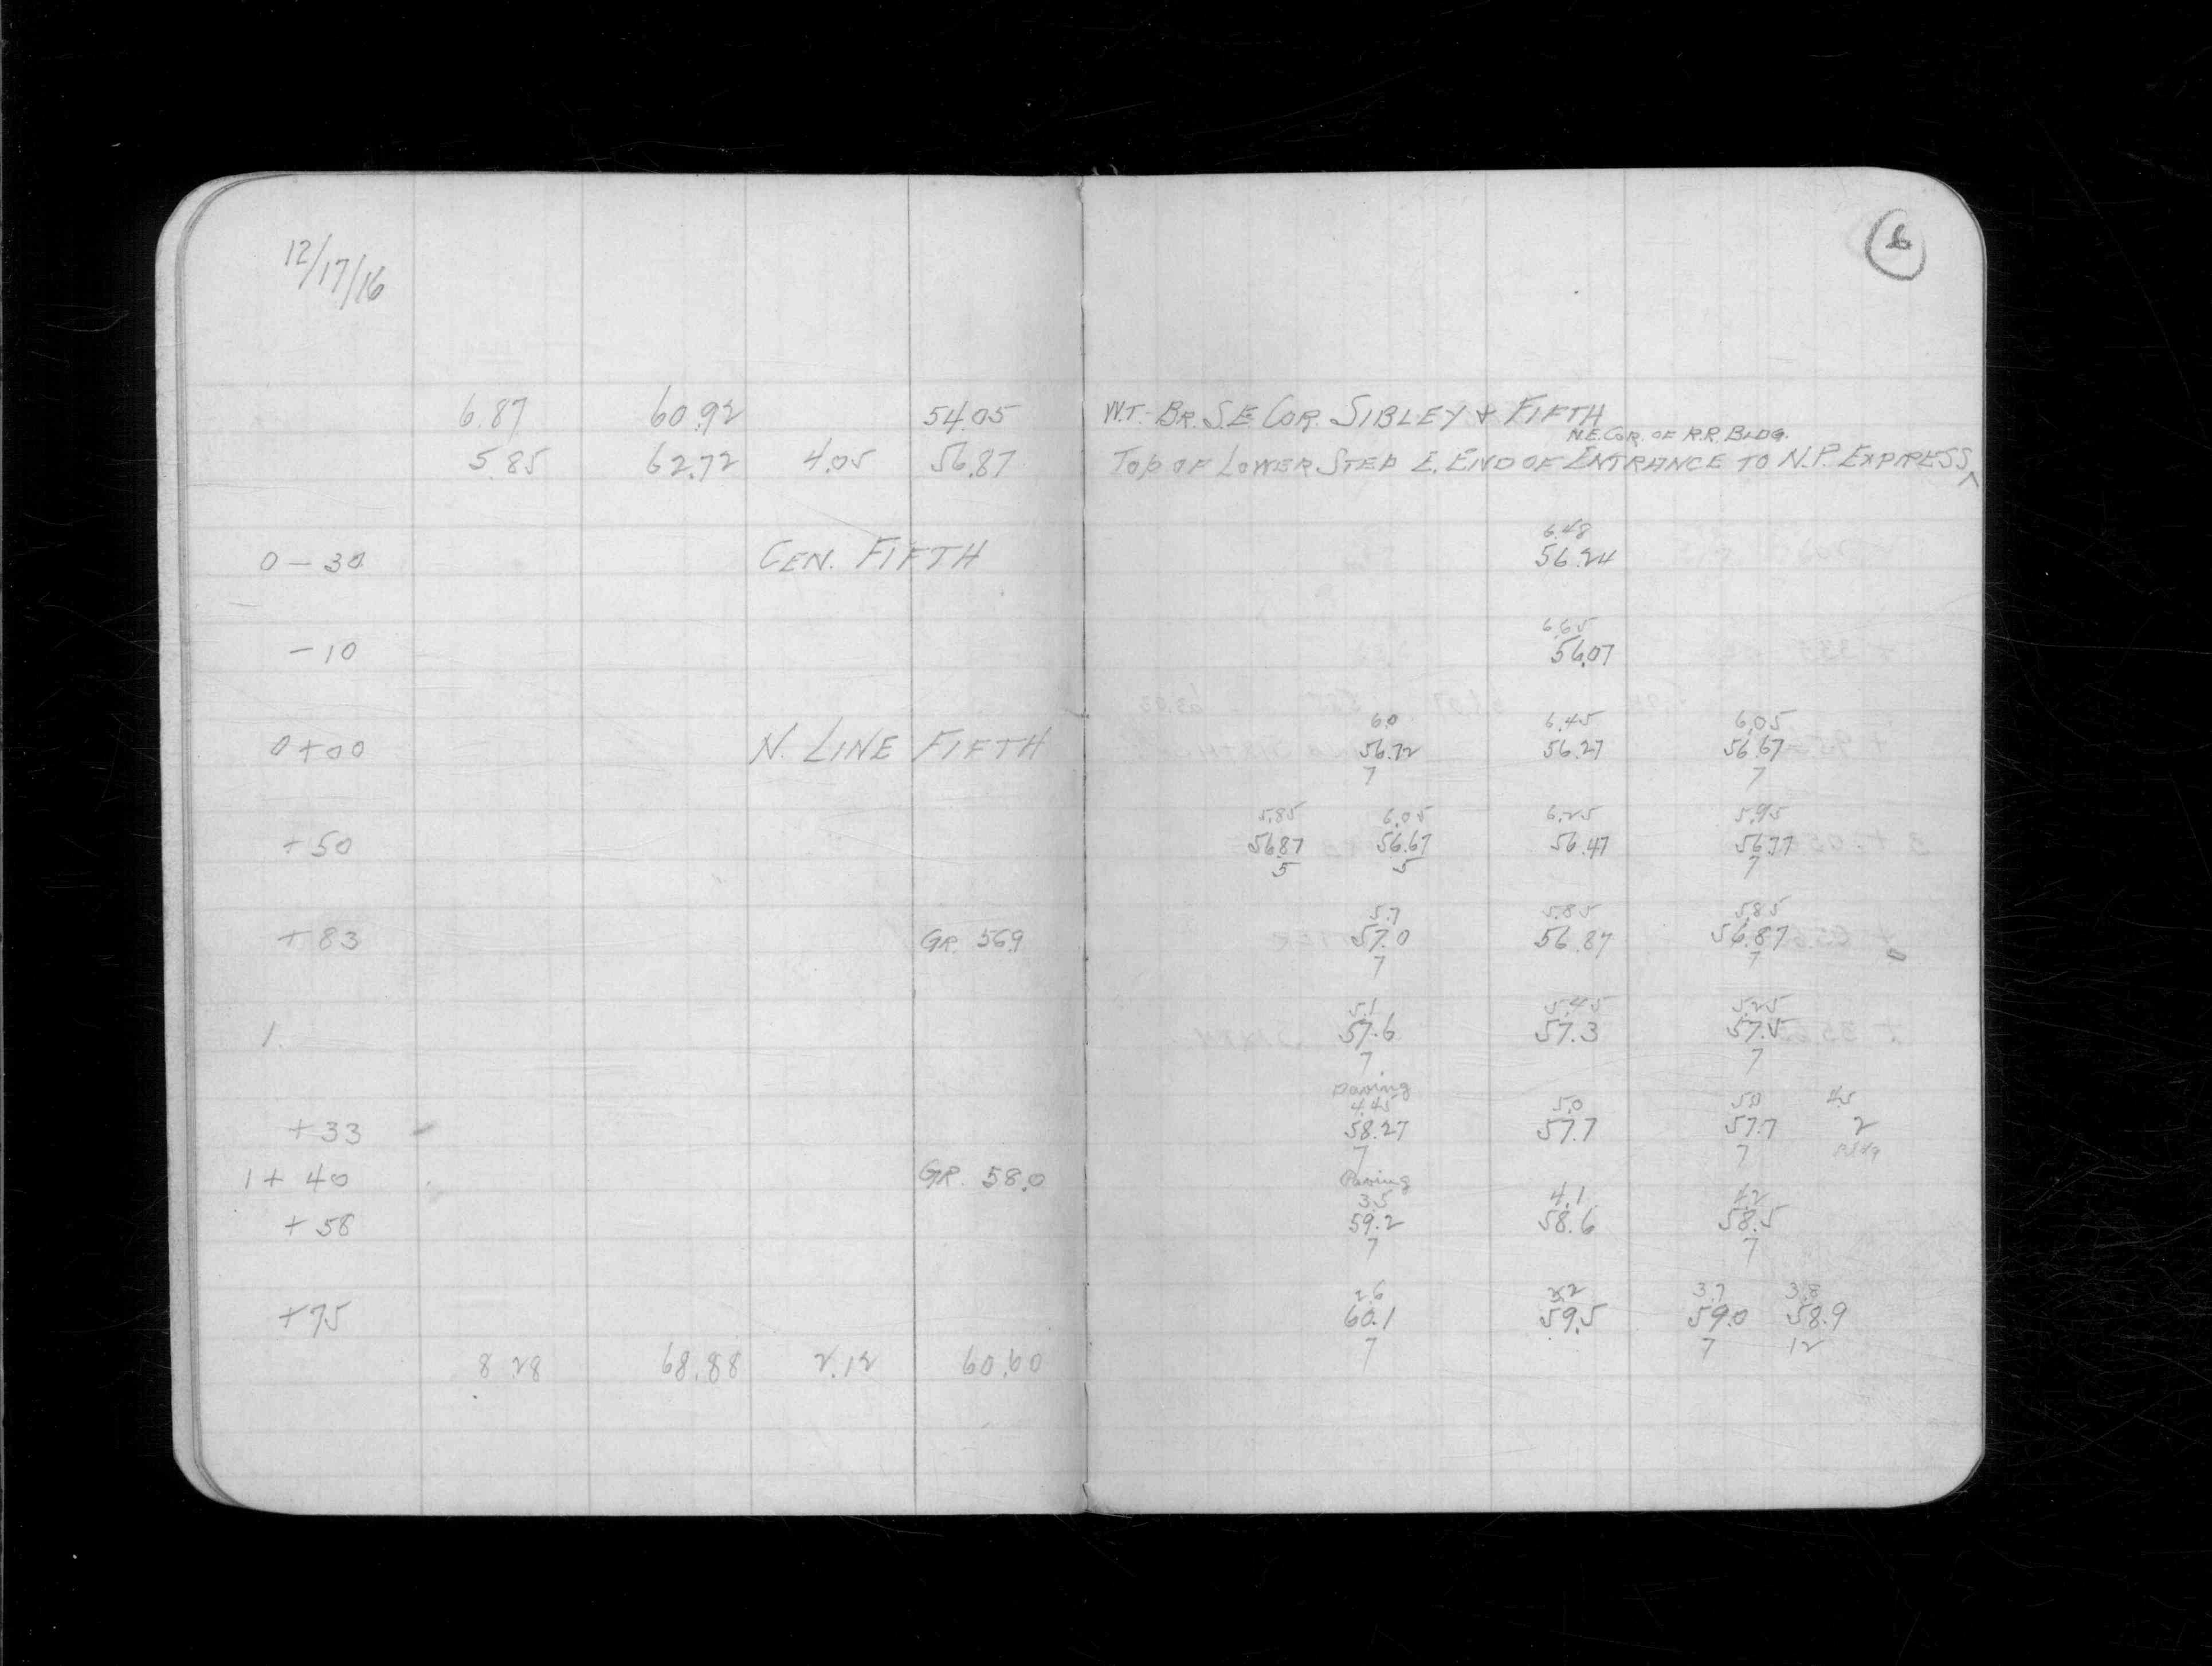 12/17/16
6
6.87 60.92 54.05 W.T. Br. S.E. Cor. Sibley & Fifth
N.E. Cor. of R.R. Bldg.
5.85 62.72 4.05 56.87 Top of Lower Step E. End of Entrance to N.P. Express ^
6.48
0 - 30 Cen. Fifth 56.24
6.65
- 10 56.07
6.0 6.45 6.05
0 + 00 N. Line Fifth 56.72 56.27 56.67
7 7
5.85 6.05 6.25 5.95
+ 50 56.87 56.67 56.47 56.77
5 5 7
5.7 5.85 5.85
+ 83 Gr. 56.9 57.0 56.87 56.87
7 7
5.1 5.45 5.25
1. 57.6 57.3 57.5
7 7
Paving
4.45 5.0 5.0 4.5
+ 33 58.27 57.7 57.7 2
7 7
1 + 40 Gr. 58.0 Paving
3.5 4.1 4.2
+ 58 59.2 58.6 58.5
7 7
2.6 3.2 3.7 3.8
+ 75 60.1 59.5 59.0 58.9
7 7 12
8.28 68.88 2.12 60.60